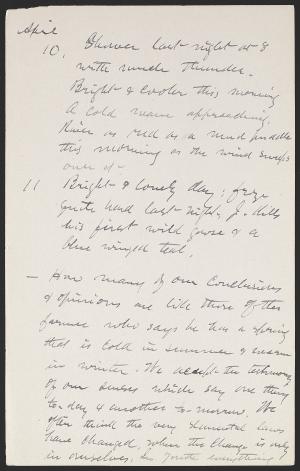 April
10. Shower last night at 8
with much thunder.
Bright & cooler this morning
A cold wave approaching.
River as red as a mud puddle
this morning as the wind sweeps
over it.
11 Bright & lovely day; froze
quite hard last night. J. kills
his first wild goose & a
blue winged teal.
— How many of our conclusions
& opinions are like those of the
farmer who says he has a spring
that is cold in summer & warm
in winter. We accept the testimony
of our senses which say one thing
to-day & another to-morrow. We
often think the very elemental laws
have changed, when the change is only
in ourselves. In youth everything